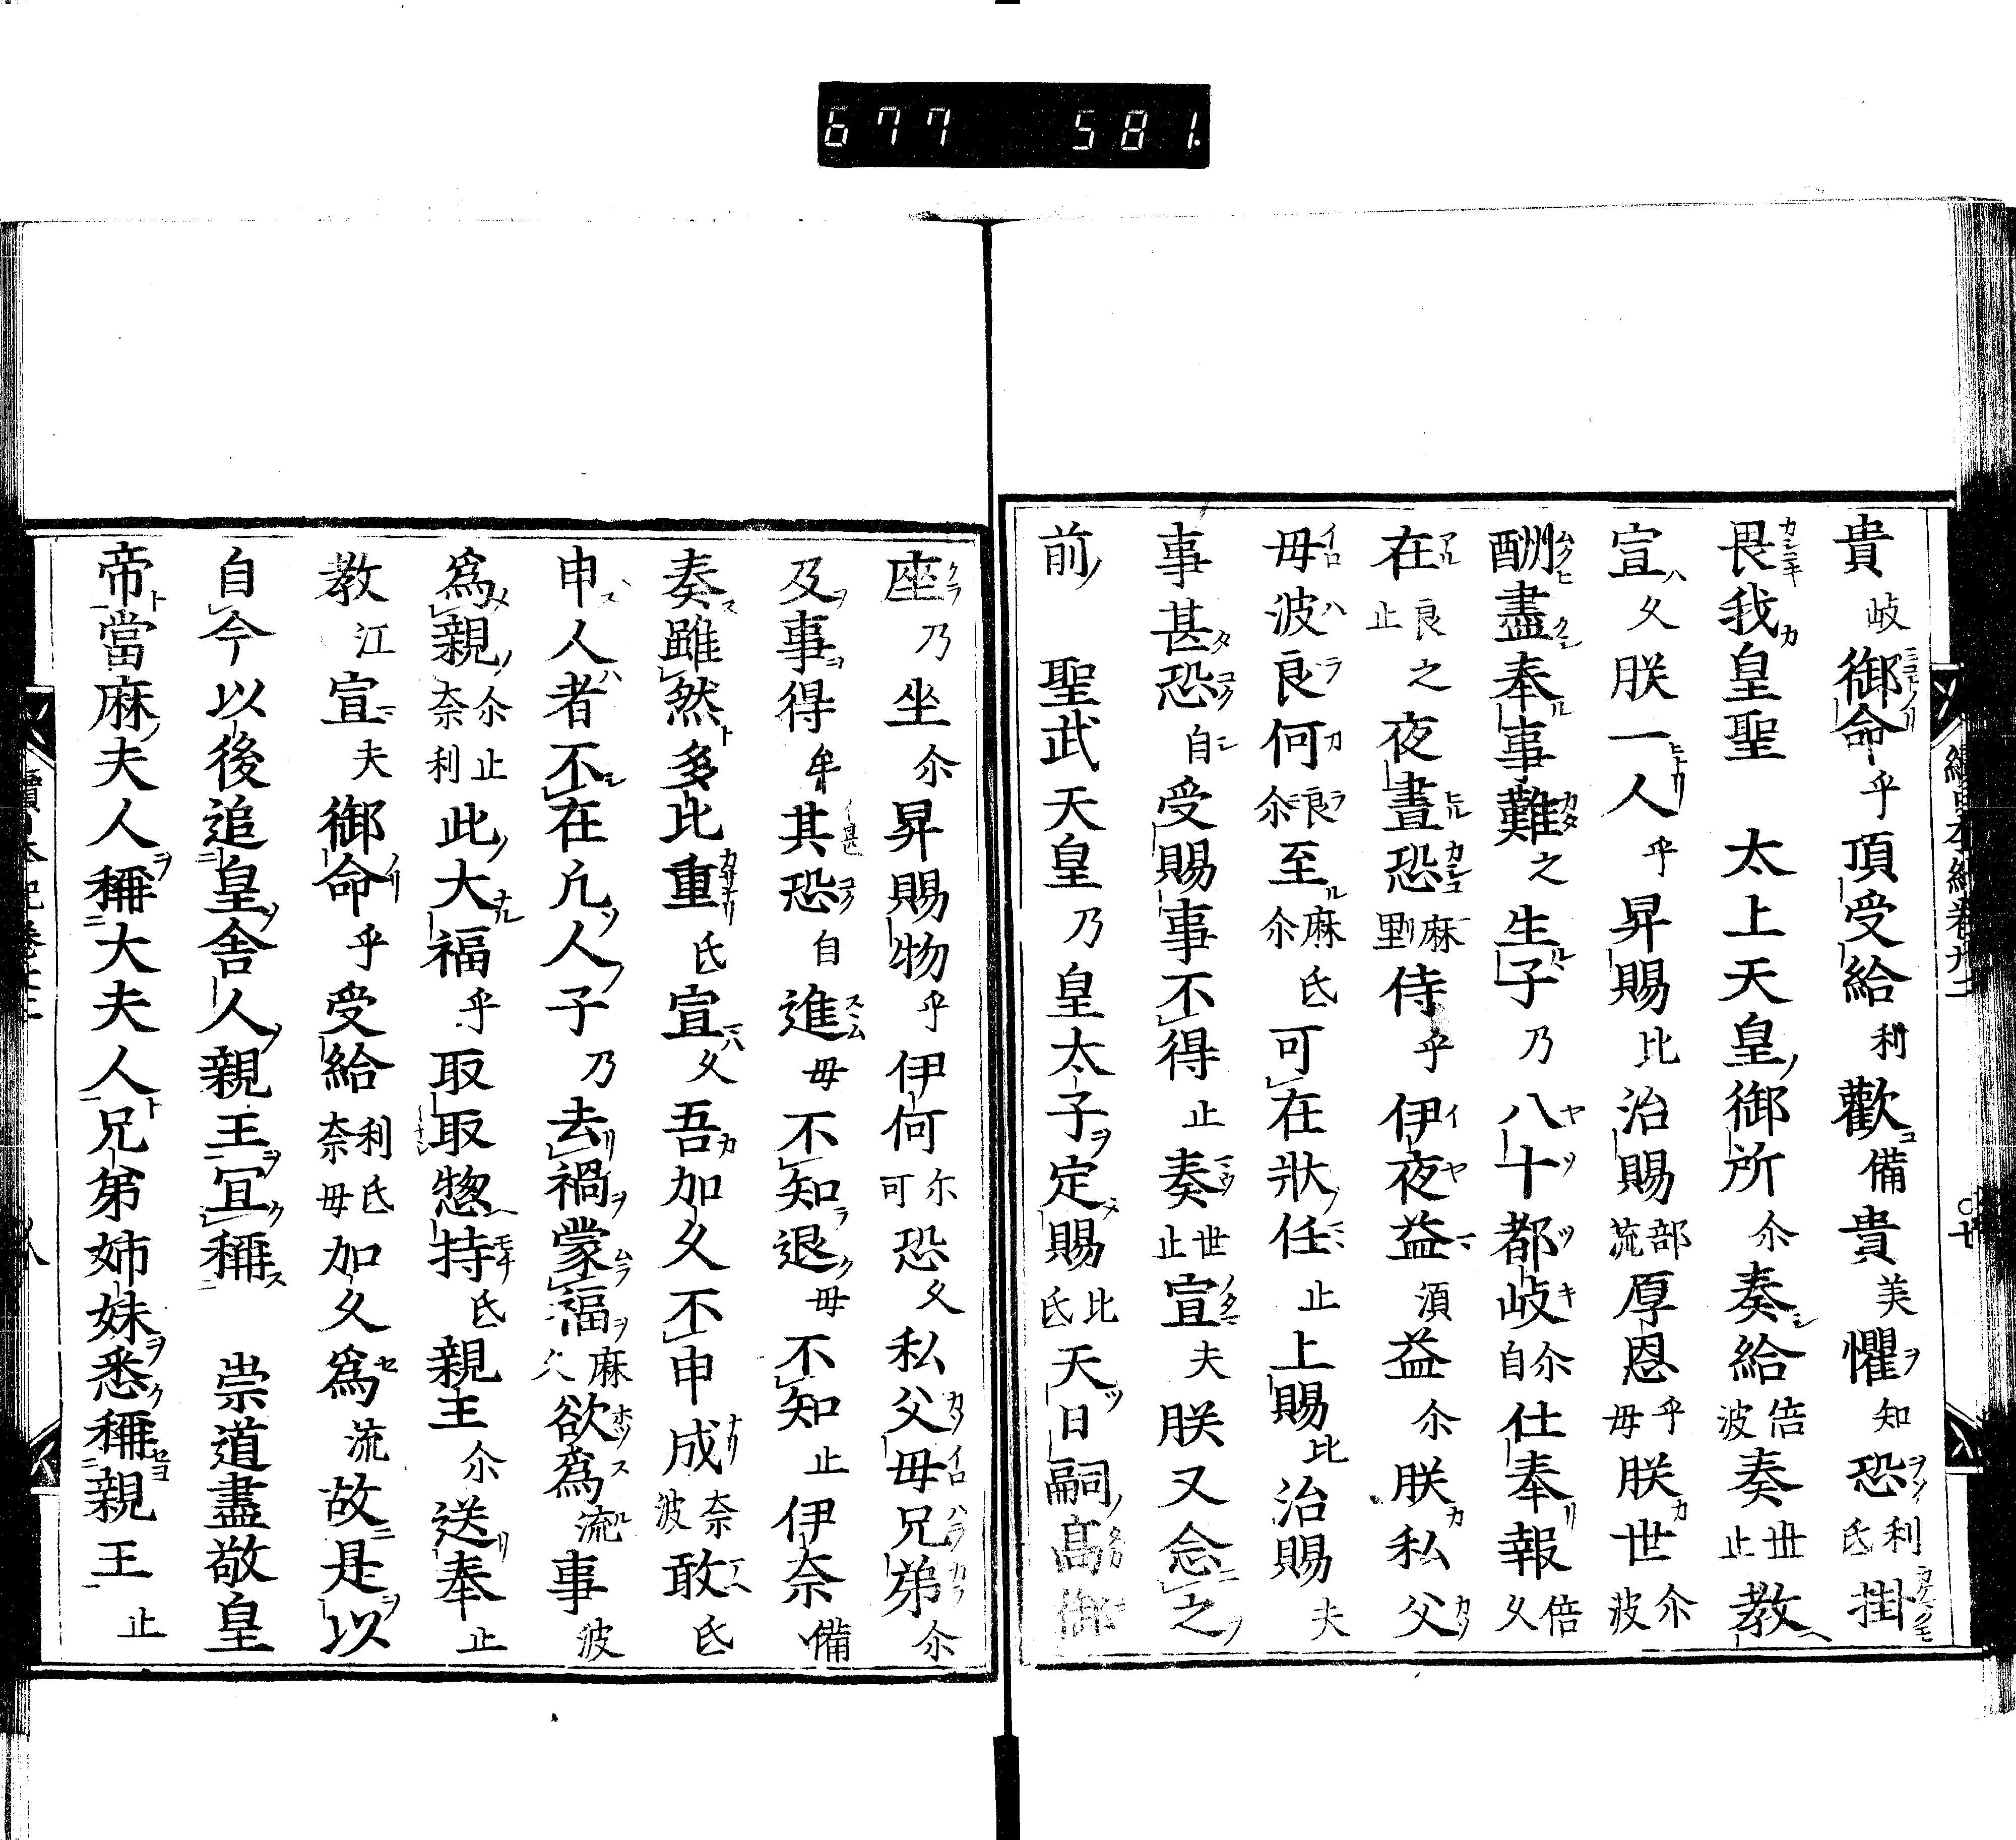 677 581.
貴岐御命乎頂受給利歡備貴美懼知恐利氐掛
畏我皇聖 太上天皇御所尒奏給倍波奏世止教
宣久朕一人乎昇賜比治賜部流厚恩乎毋朕世尒波
酬盡奉事難之生子乃八十都岐尒自仕奉報倍久
在良止之夜晝恐麻里侍乎伊夜益須益尒朕私父
毋波良何良尒至麻尒氐可在狀任止上賜比治賜夫
事甚恐自受賜事不得止奏世止宣夫朕又念之
前 聖武天皇乃皇太子定賜比氐天日嗣高御
座乃坐尒昇賜物乎伊何尓可恐久私父毋兄弟尒
及事得牟其恐自進毋不知退毋不知止伊奈備
奏雖然多比重氐宣久吾加久不申成奈波敢氐
申人者不在凢人子乃去禍蒙福麻久欲爲流事波
爲親尒止奈利此大福乎取取惣持氐親王尒送奉止
教江宣夫御命乎受給利氐奈毋加久爲流故是以
自今以後追皇舍人親王冝稱 崇道盡敬皇
帝當麻夫人稱大夫人兄弟姉妹悉稱親王止